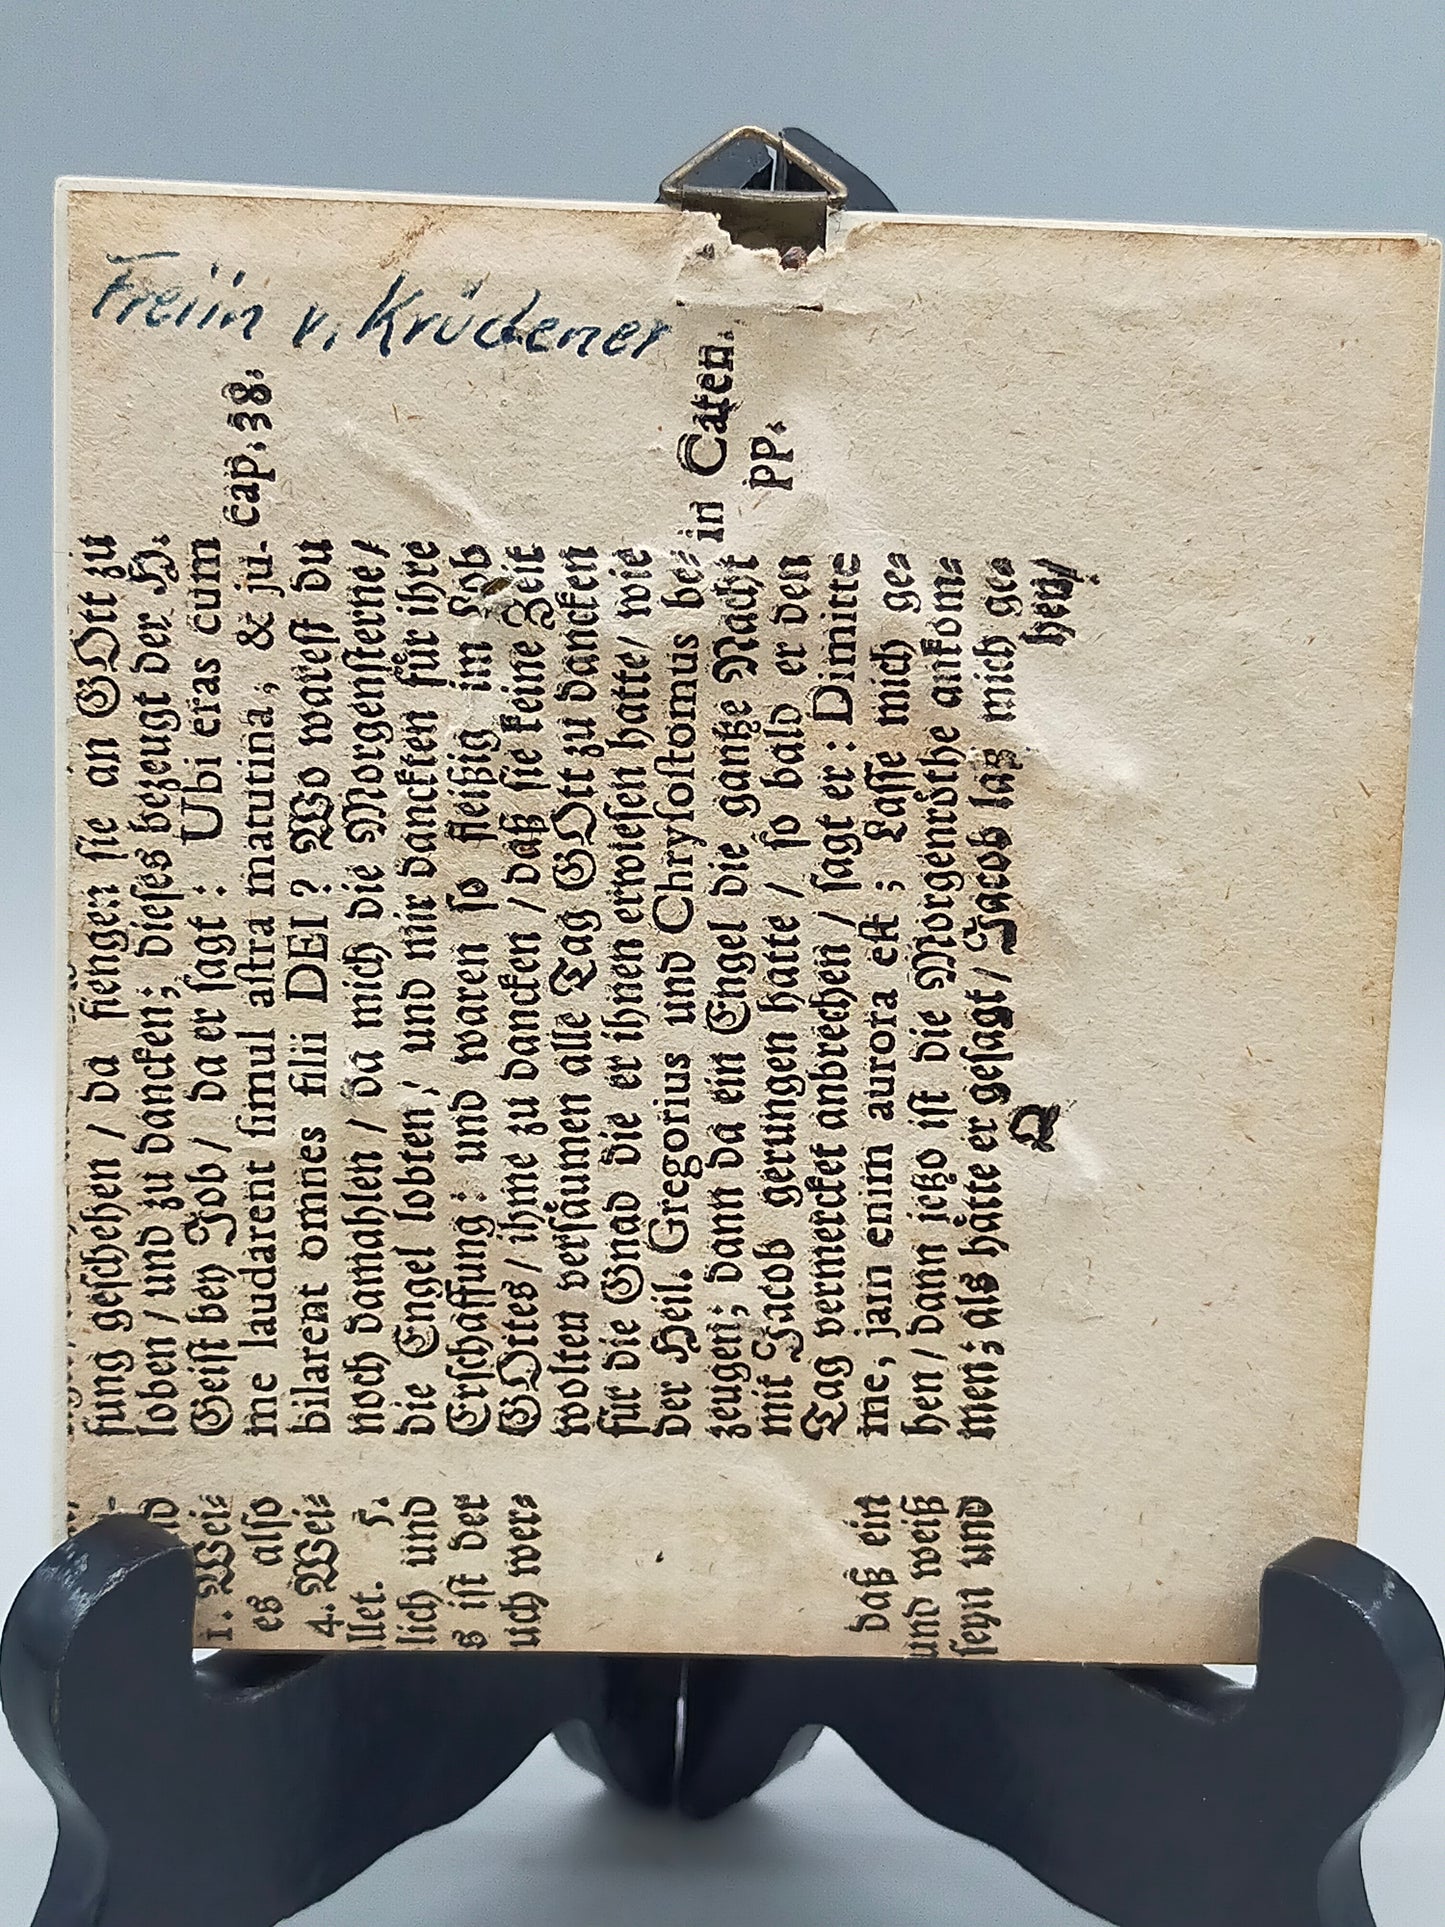 Freiin v. Krüdener
sung geschehen / da fiengen sie an GOtt zu
loben / und zu dancken; dieses bezeugt der H.
Geist bey Job / da er sagt : Ubi eras cum
me laudarent simul astra matutina, & ju-
cap. 38.
bilarent omnes filii DEI? Wo warest du
noch damahlen / da mich die Morgensterne /
die Engel lobten / und mir danckten für ihre
Erschaffung : und waren so fleißig im Lob
GOttes / ihme zu dancken / daß sie keine Zeit
wolten versäumen alle Tag GOtt zu dancken
für die Gnad die er ihnen erwiesen hatte / wie
der Heil. Gregorius und Chrysostomus be-
in Caten.
PP.
zeugen; dann da ein Engel die gantze Nacht
mit Jacob gerungen hatte / so bald er den
Tag vermercket anbrechen / sagt er : Dimitte
me, jam enim aurora est; Lasse mich ge-
hen / dann jetzo ist die Morgenröthe ankom-
men; als hätte er gesagt / Jacob laß mich ge-
hen /
1. Wei-
es also
4. Wei-
llet. 5.
lich und
s ist der
uch wer-
daß ein
und weiß
seyn und